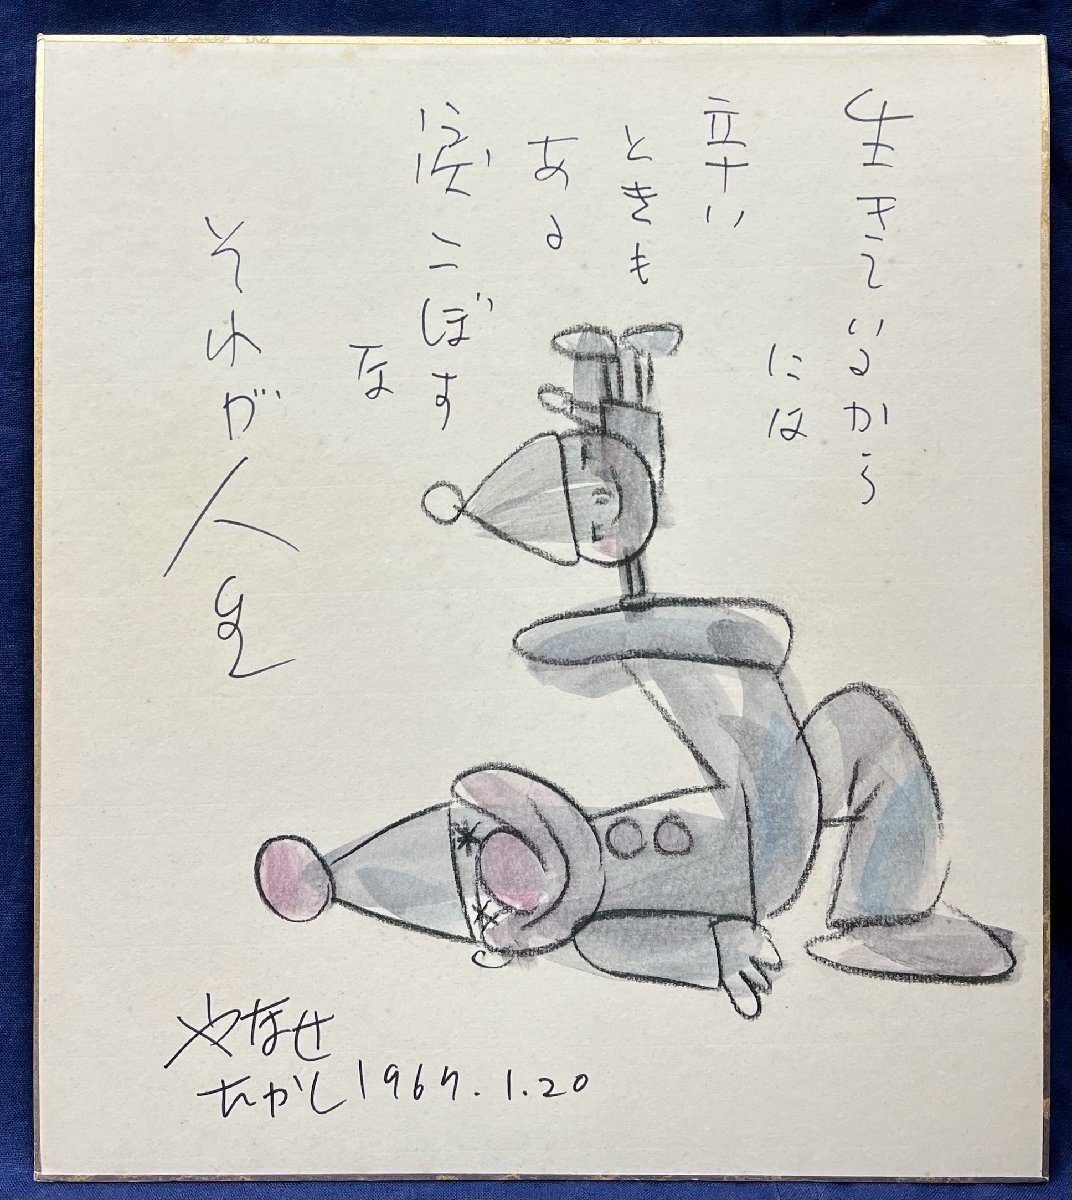 生きているから
には
辛い
ときも
ある
涙こぼす
な
それが
人生
やなせ
たかし1967.1.20